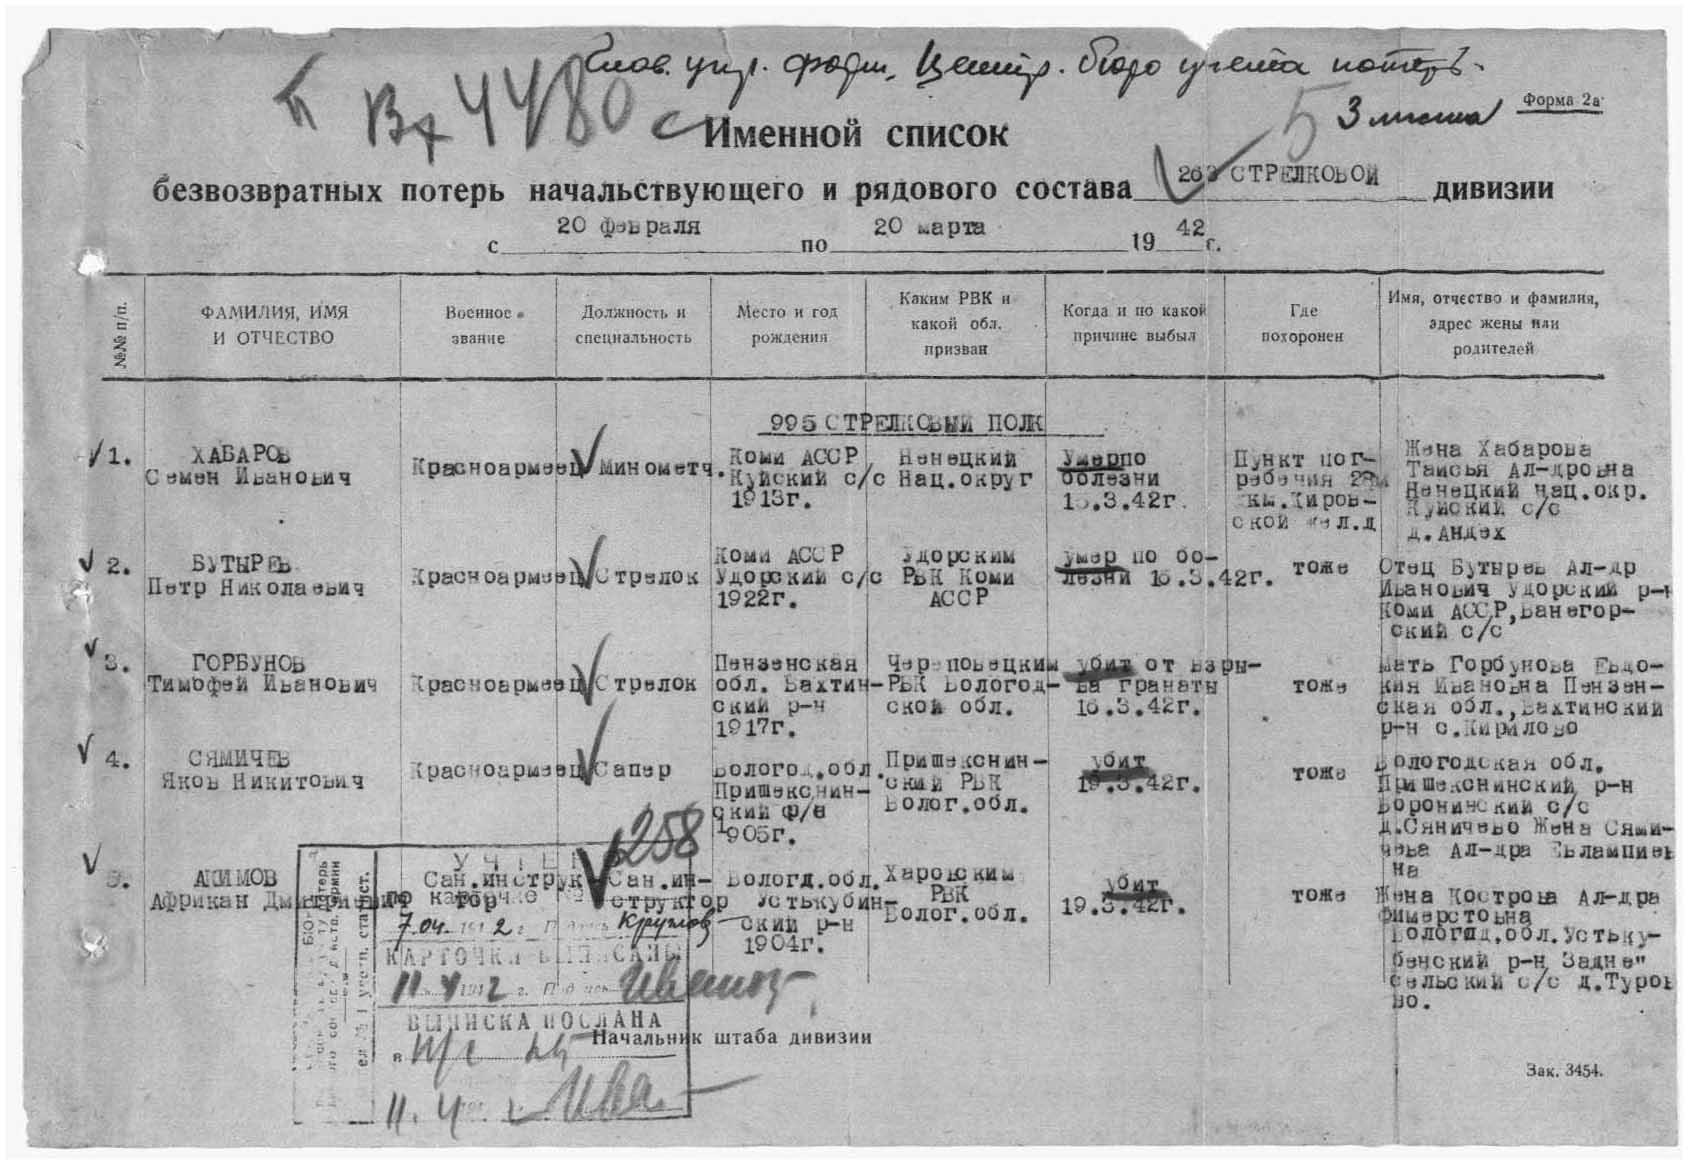 упр. форм. Центр. бюро учета потерь
Вх 4480 с
5 3 листа
Форма 2а
Именной список
безвозвратных потерь начальствующего и рядового состава 263 СТРЕЛКОВОЙ дивизии
с 20 февраля по 20 марта 1942 г.
№№ п/п.
ФАМИЛИЯ, ИМЯ
И ОТЧЕСТВО
Военное
звание
Должность и
специальность
Место и год
рождения
Каким РВК и
какой обл.
призван
Когда и по какой
причине выбыл
Где
похоронен
Имя, отчество и фамилия,
адрес жены или
родителей
995 СТРЕЛКОВЫЙ ПОЛК
1.
ХАБАРОВ
Семен Иванович
Красноармеец
Минометч.
Коми АССР
Куйский с/с
1913г.
Ненецкий
Нац.округ
Умерпо
болезни
.3.42г.
Пункт пог-
ребения
км.Киров-
ской жел.д
Жена Хабарова
Таисья Ал-дровна
Ненецкий нац.окр.
Куйский с/с
д.Андех
2.
БУТЫРЕВ
Петр Николаевич
Красноармеец
Стрелок
Коми АССР
Удорский с/с
1922г.
Удорским
РВК Коми
АССР
умер по бо-
лезни 15.3.42г.
тоже
Отец Бутырев Ал-др
Иванович Удорский р-н
Коми АССР, Ванегор-
ский с/с
3.
ГОРБУНОВ
Тимофей Иванович
Красноармеец
Стрелок
Пензенская
обл. Бахтин-
ский р-н
1917г.
Череповецким
РВК Вологод-
ской обл.
убит от взры-
ва гранаты
16.3.42г.
тоже
Мать Горбунова Евдо-
кия Ивановна Пензен-
ская обл., Бахтинский
р-н с.Кирилово
4.
СЯМИЧЕВ
Яков Никитович
Красноармеец
Сапер
Вологод.обл.
Пришекснин-
ский ф/с
1905г.
Пришекснин-
ский РВК
Волог.обл.
убит
19.3.42г.
тоже
Вологодская обл.
Пришекснинский р-н
Воронинский с/с
д.Сяничево Жена Сями-
чева Ал-дра Евлампиев
на
5.
АКИМОВ
Африкан Дмитриевич
Сан.инструк-
тор
Сан.ин-
структор
Вологд.обл.
Устькубин-
ский р-н
1904г.
Харовским
РВК
Волог.обл.
убит
19.3.42г.
тоже
Жена Кострова Ал-дра
Фимерстовна
Вологд.обл.Устьку-
бенский р-н Задне"
сельский с/с д.Туров
во.
258
УЧТЕН
по карточке №
7.04. 1942 г.
КАРТОЧКИ ВЫПИСАНЫ
ВЫПИСКА ПОСЛАНА
в
Начальник штаба дивизии
Зак. 3454.